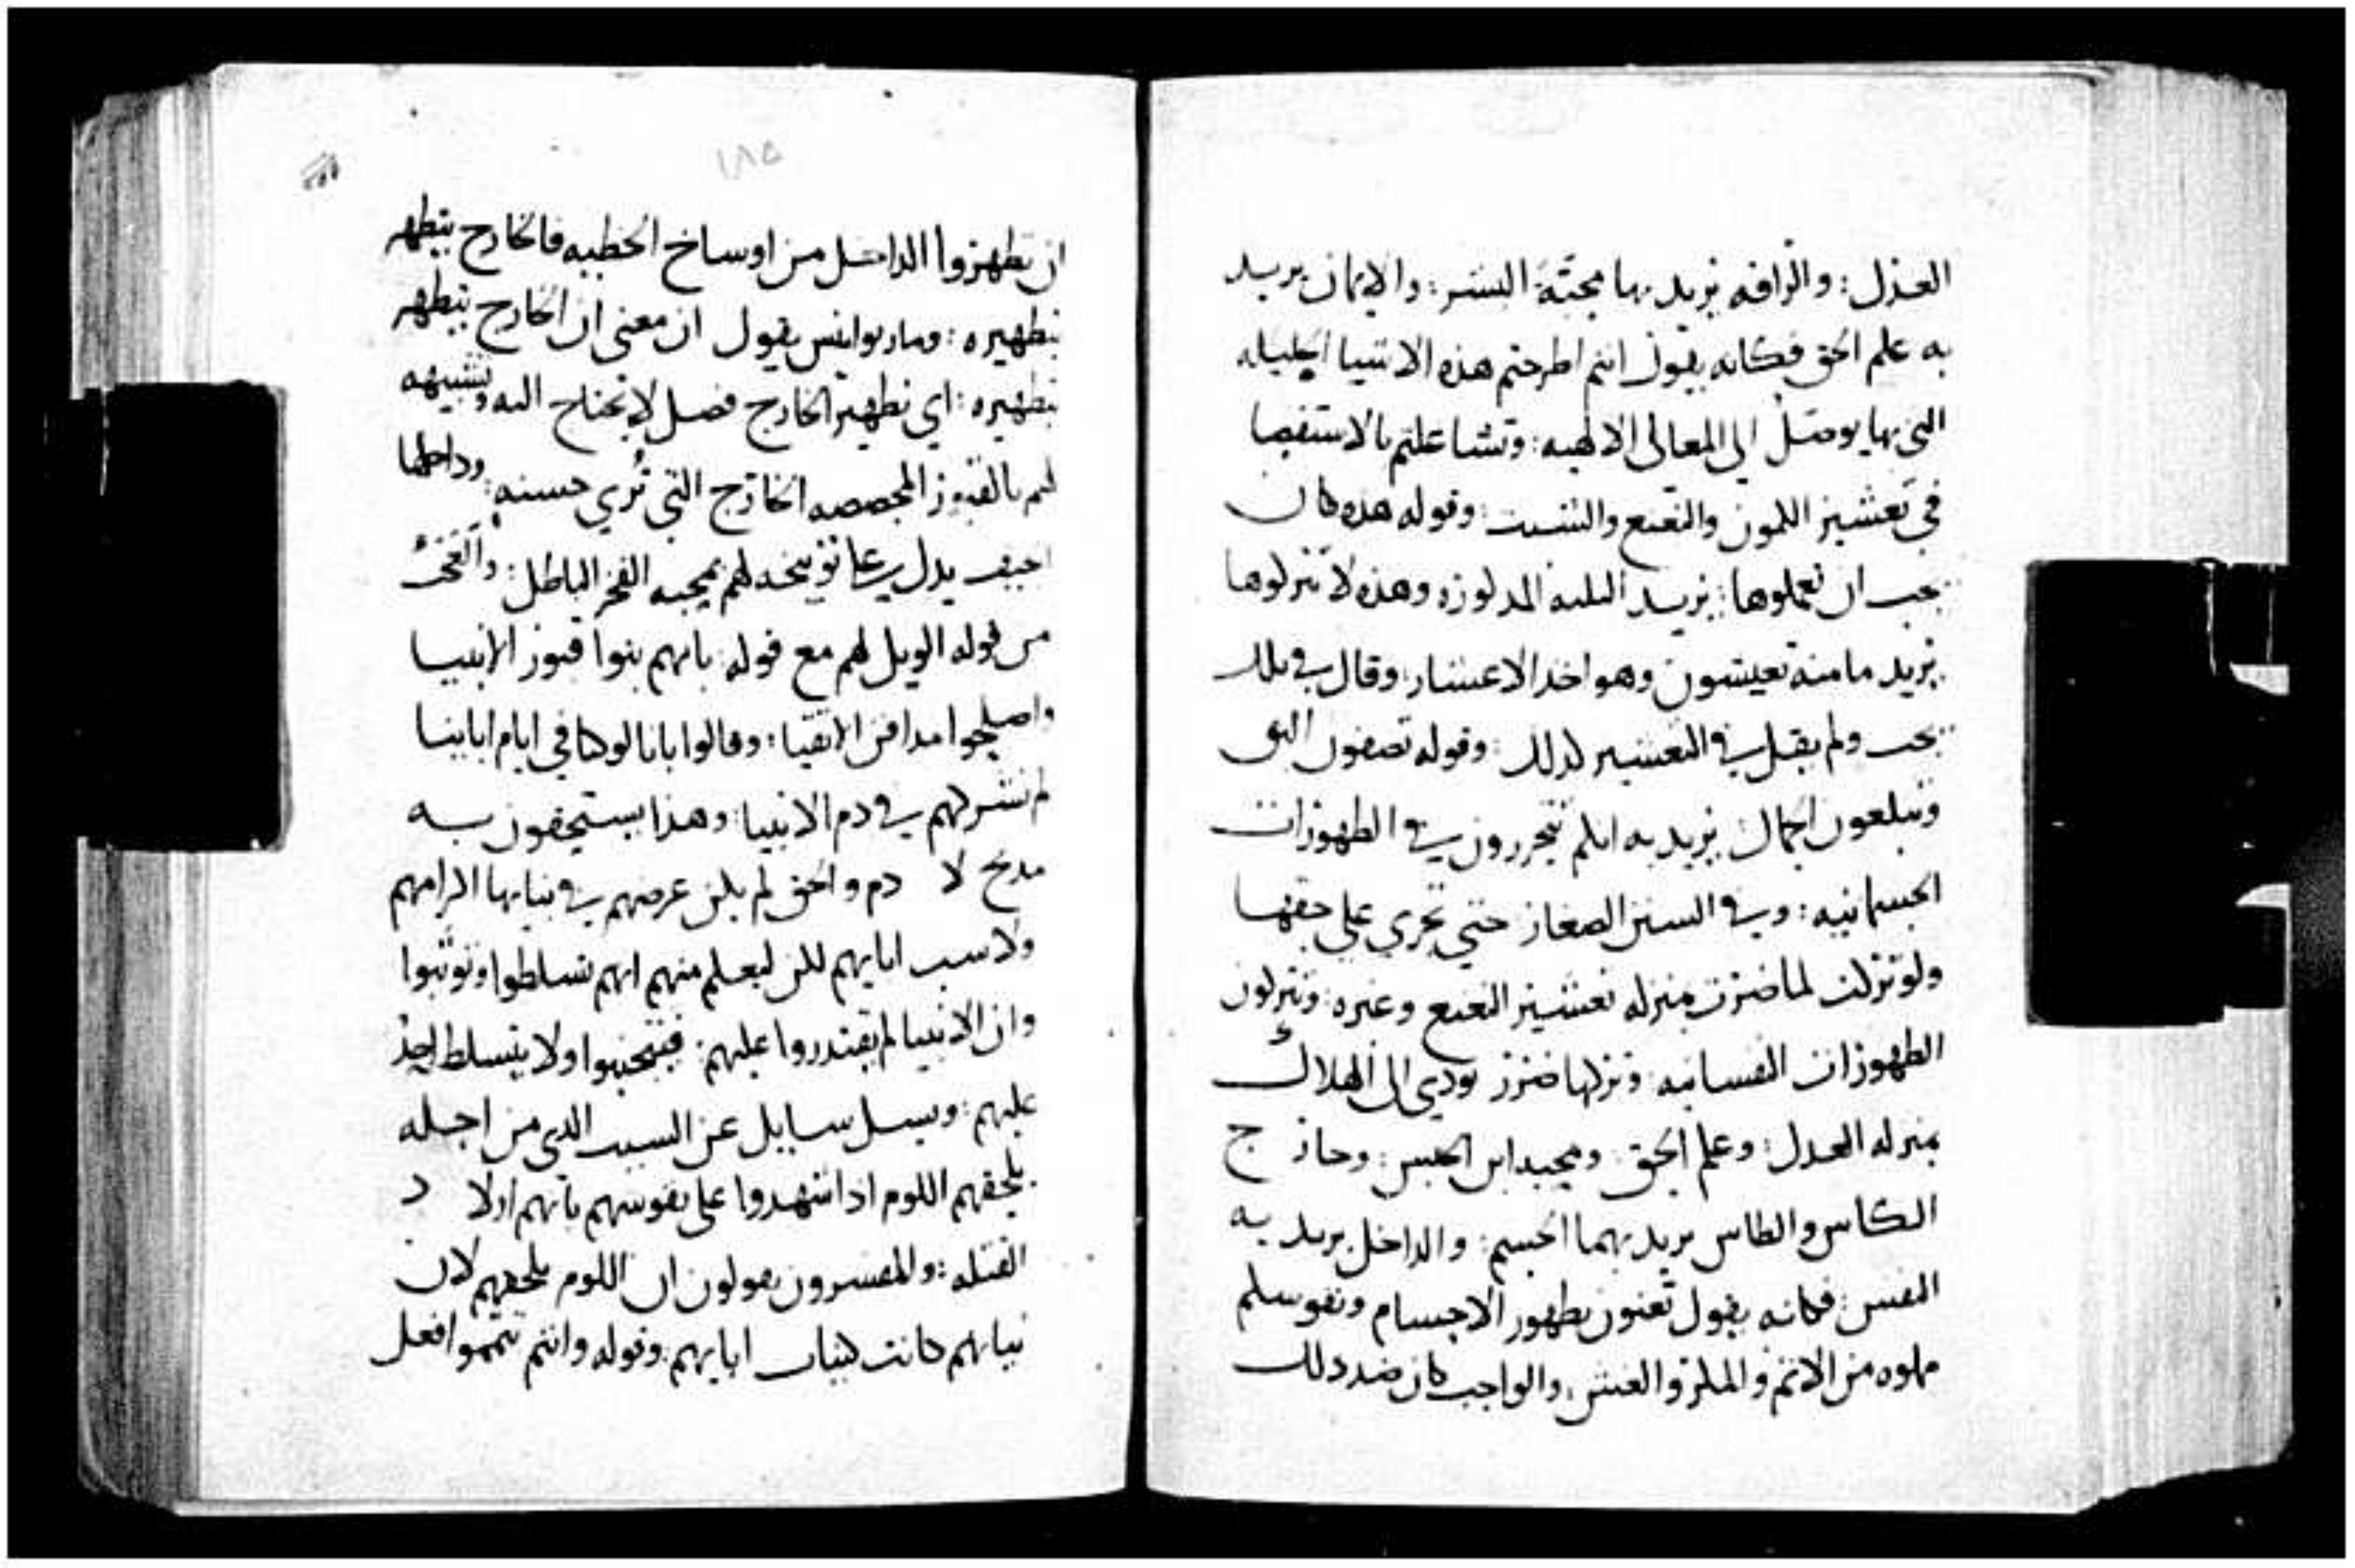 العدل: والرافه يريد بها محبة البشر: والايمان يريد
به علم الحق فكانه يقول انتم اطرحتم هذه الاشيا الجليله
التي بها يوصل الي المعالي الالهيه: وتشاغلتم بالاستقصا
في تعشير الكمون والنعنع والشبت: وقوله هذه كان
يجب ان تعملوها: يريد الثلثه المذكوره وهذه لا تتركوها
يريد ما منه تعيشون وهو اخد الاعشار: وقال في تلك
يجب ولم يقل في التعشير كذلك: وقوله تصفون البق
وتبلعون الجمال يريد به انكم تتحررون في الطهورات
الجسمانيه: وفي السنن الصغار حتي تجري علي حقها
ولو تركت لما ضرت بمنزله تعشير النعنع وغيره: وتتركون
الطهورات النفسانيه: وتركها ضرر يودي الي الهلاك
بمنزله العدل: وعلم الحق: ومحبه ابن الجنس: وخارج
الكاس والطاس يريد بهما الجسم: والداخل يريد به
النفس: فكانه يقول تعنون بطهور الاجسام ونفوسكم
مملوه من الاثم والمكر والغش: والواجب كان ضد ذلك
١٨٥
ان تطهروا الداخل من اوساخ الخطيه فالخارج يتطهر
بتطهيره: ومار يوانيس يقول ان معني ان الخارج يتطهر
بتطهيره: اي تطهير الخارج فضل لا يحتاج اليه وتشبيهه
لهم بالقبور المجصصه الخارج التي تري حسنه: وداخلها
الجيف يدل علي توبيخه لهم بمحبه الفخر الباطل:
من قوله الويل لهم مع قوله: بانهم بنوا قبور الانبيا
واصلحوا مدافن الاتقيا: وقالوا باننا لو كنا في ايام ابائنا
لم نشركهم في دم الانبيا: وهذا يستحقون به
مدح لا دم والحق لم يكن غرضهم في بنيانها اكرامهم
ولا سب ابايهم لكن ليعلم منهم انهم تسلطوا وتوثبوا
وان الانبيا لم يقتدروا عليهم: فيتجنبوا ولا يتسلط احد
عليهم: ويسل سايل عن السبب الذي من اجله
يلحقهم اللوم اذا شهدوا علي نفوسهم بانهم اولاد
القتله: والمفسرون يقولون ان اللوم يلحقهم لان
نياتهم كانت كنيات ابايهم: وقوله وانتم تتمموا فعل